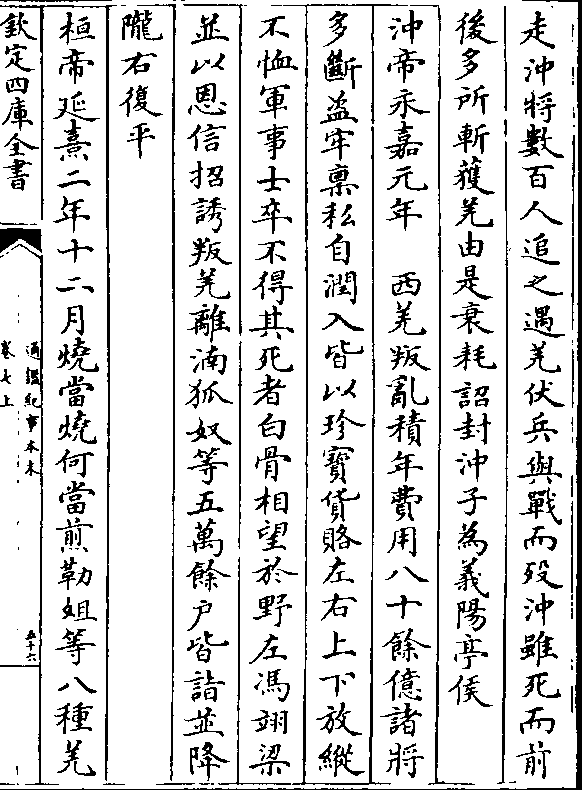 走沖將數百人追之遇羌伏兵與戰而歿沖雖死而前
後多所斬獲羌由是衰耗詔封沖子為義陽亭侯
沖帝永嘉元年　西羌叛亂積年費用八十餘億諸將
多斷盗牢稟私自潤入皆以珍寶貨賂左右上下放縱
不恤軍事士卒不得其死者白骨相望於野左馮翊梁
並以恩信招誘叛羌離湳狐奴等五萬餘户皆詣並降
隴右復平
桓帝延熹二年十二月燒當燒何當煎勒姐等八種羌
欽定四庫全書
通鑑紀事本末
卷七上
五十六